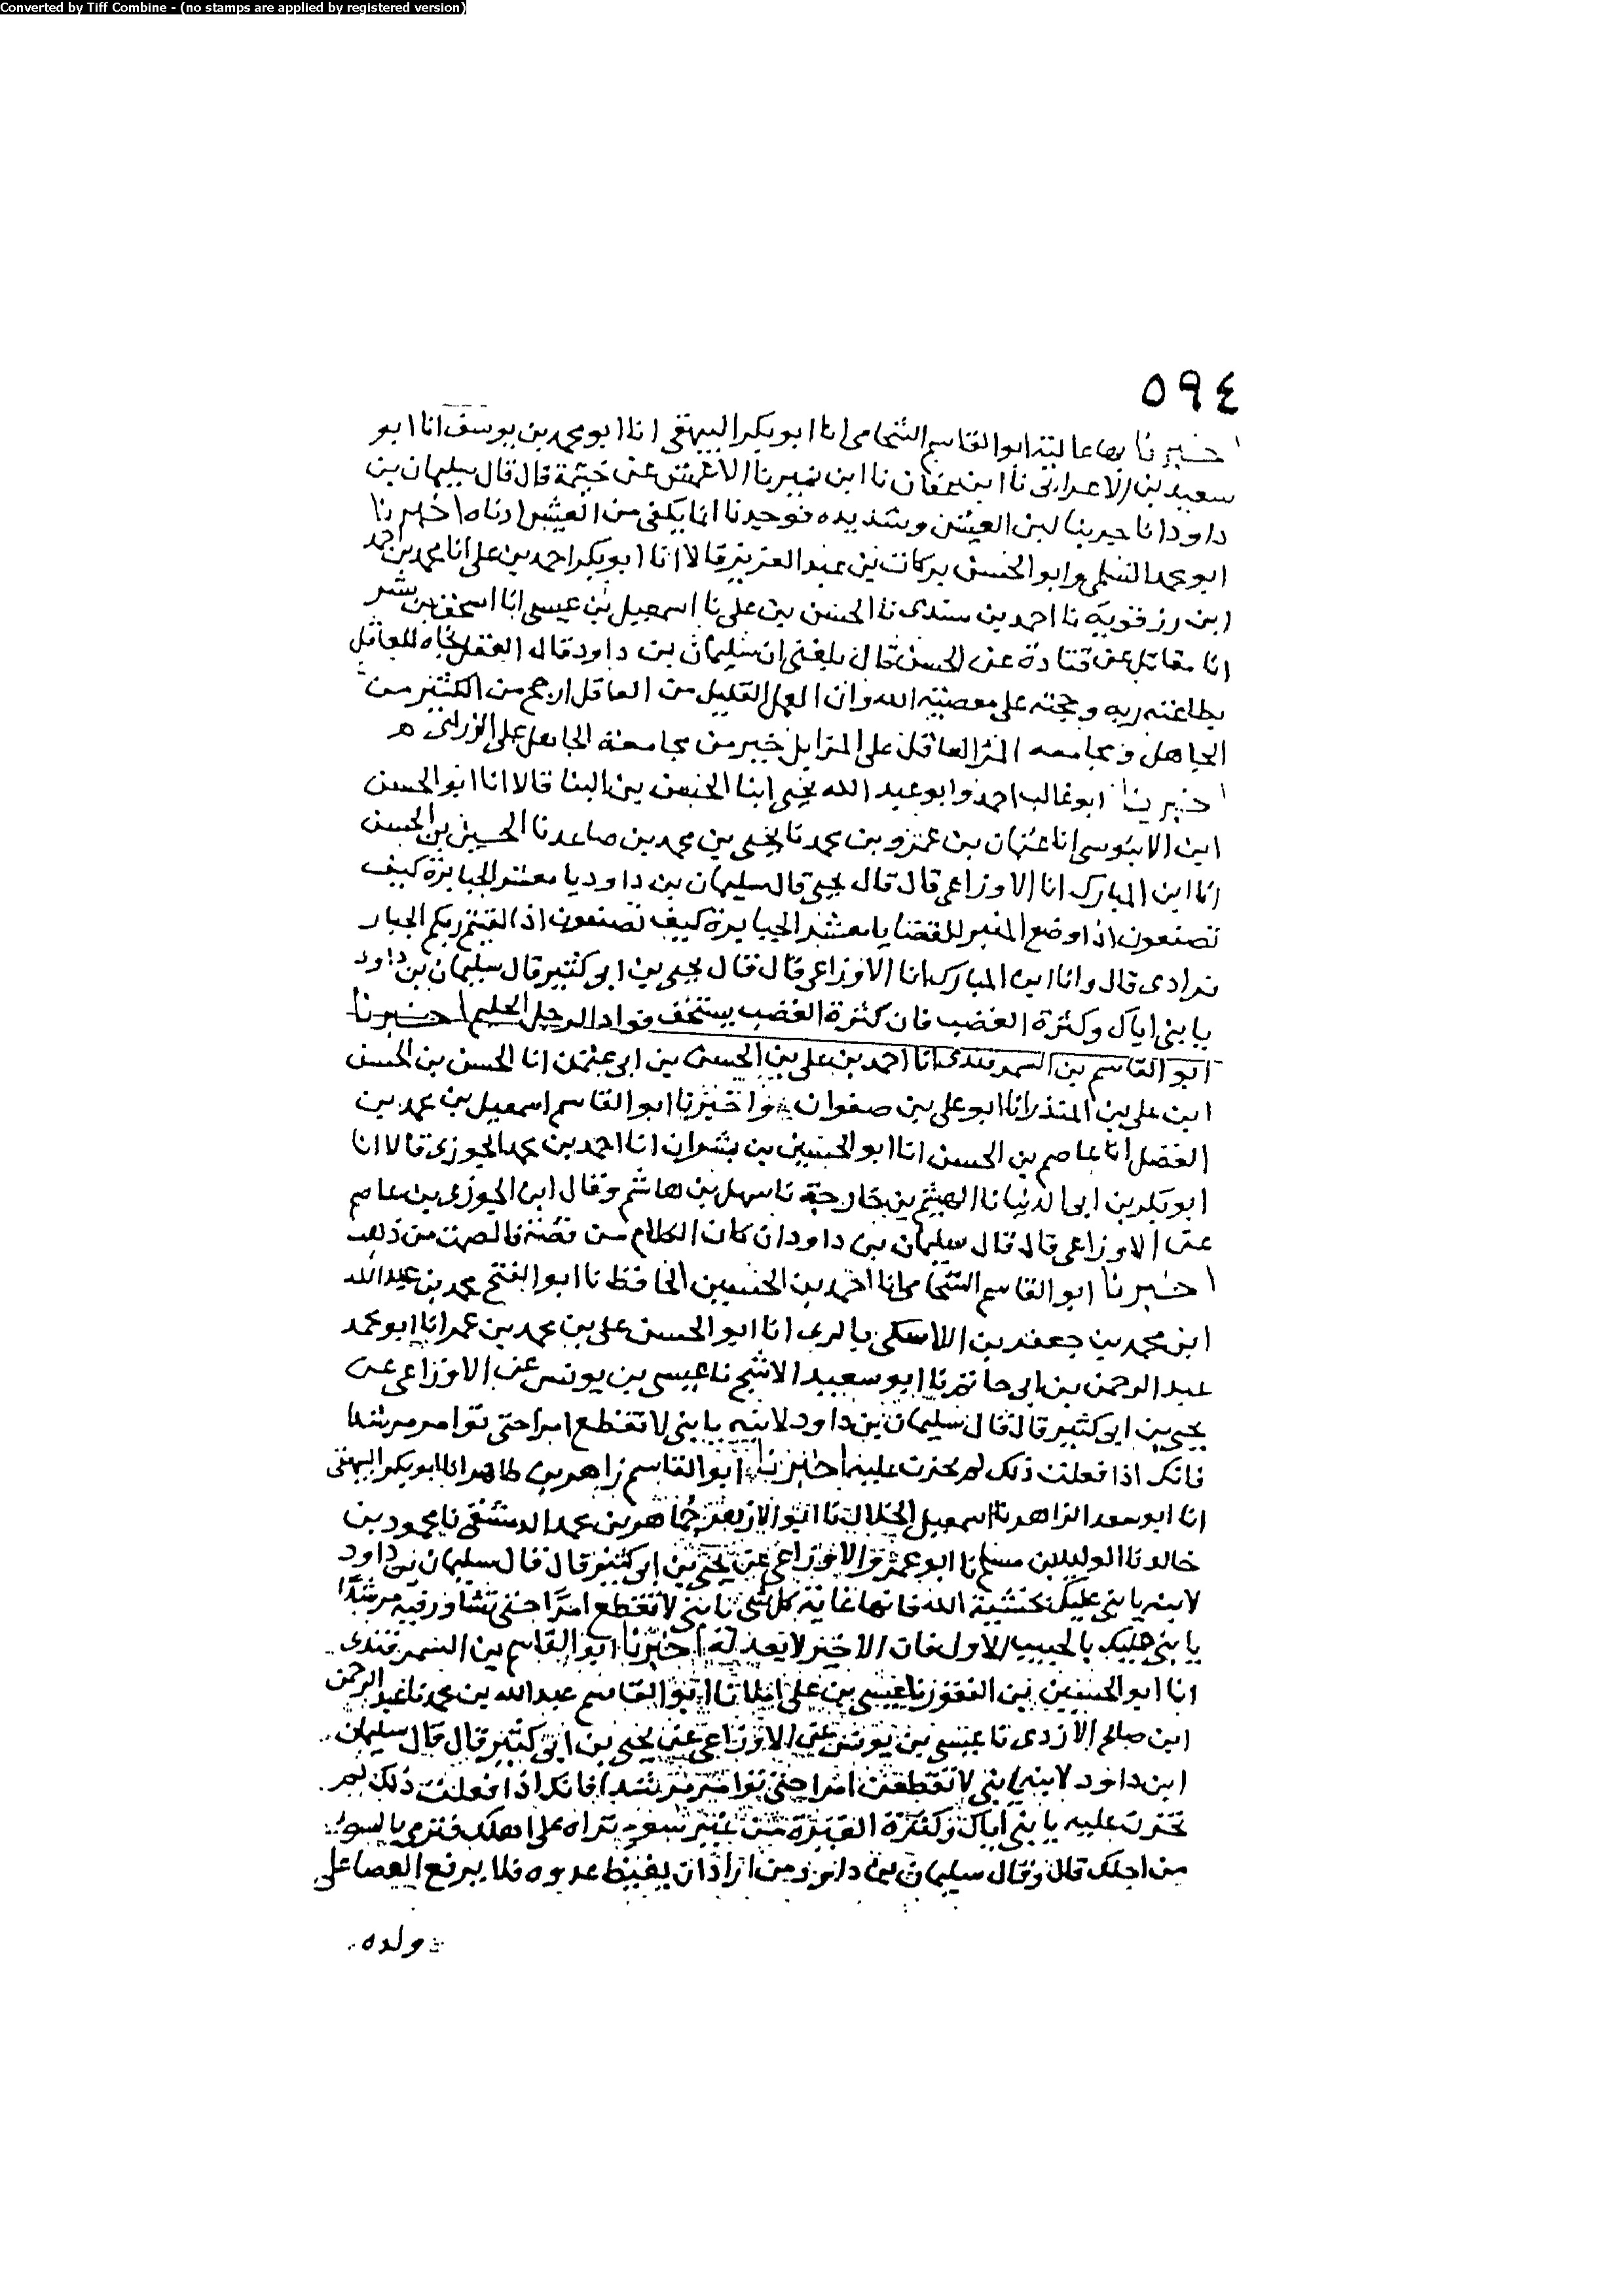 Converted by Tiff Combine - (no stamps are applied by registered version)
٥٩٤
اخبرنا بها عالية ابو القاسم الشحامى انا ابو بكر البيهقى انا ابو محمد بن يوسف انا ابو
سعيد بن الاعرابى نا ابن عفان نا ابن نمير نا الاعمش عن خيثمة قال قال سليمان بن
داود انا جربنا لين العيش وشديده فوجدنا انما يكفى من العيش ادناه اخبرنا
ابو محمد السلمى وابو الحسن بركات بن عبد العزيز قالا انا ابو بكر احمد بن على انا محمد بن احمد
ابن رزقويه نا احمد بن سندى نا الحسن بن على نا اسمعيل بن عيسى انا اسحق بن بشر
انا مقاتل عن قتادة عن الحسن قال بلغنى ان سليمان بن داود قال العقل نجاه للعاقل
بطاعته ربه وحجته على معصيته الله وان العمل القليل من العاقل ارجح من الكثير من
الجاهل ومجامعه العاقل على المزابل خير من مجامعة الجاهل على الزرابى ه
اخبرنا ابو غالب احمد وابو عبد الله يحيى ابنا الحسن بن البنا قالا انا ابو الحسن
ابن الابنوسى انا عثمان بن عمرو بن محمد نا يحيى بن محمد بن صاعد نا الحسين بن الحسن
انا ابن المبارك انا الاوزاعى قال قال يحيى قال سليمان بن داود يا معشر الجبابرة كيف
تصنعون اذا وضع المنبر للقضا يا معشر الجبابرة كيف تصنعون اذا لقيتم ربكم الجبار
فرادى قال وانا ابن المبارك انا الاوزاعى قال قال يحيى بن ابو كثير قال سليمان بن داود
يا بنى اياك وكثرة الغضب فان كثرة الغضب يستخف فواد الرجل الحليم اخبرنا
ابو القاسم بن السمرقندى انا احمد بن على بن الحسن بن ابى عثمن انا الحسن بن الحسن
ابن على بن المنذر انا ابو على بن صفوان ه واخبرنا ابو القاسم اسمعيل بن محمد بن
الفضل انا عاصم بن الحسن انا ابو الحسين بن بشران انا احمد بن محمد الجوزى قالا انا
ابو بكر بن ابى الدنيا نا الهيثم بن خارجة نا سهل بن هاشم وقال ابن الجوزى بن عاصم
عن الاوزاعى قال قال سليمان بن داود ان كان الكلام من فضة فالصمت من ذهب
اخبرنا ابو القاسم الشحامى انا احمد بن الحسين الحافظ نا ابو الفتح محمد بن عبد الله
ابن محمد بن جعفر بن بالرى انا ابو الحسن على بن محمد بن عمر انا ابو محمد
عبد الرحمن بن ابى حاتم نا ابو سعيد الاشج نا عيسى بن يونس عن الاوزاعى عن
يحيى بن ابى كثير قال قال سليمان بن داود لابنه يا بنى لا تقطع امرا حتى توامر مرشدا
فانك اذا فعلت ذلك لم تحزن عليه اخبرنا ابو القاسم زاهر بن طاهر انا ابو بكر البيهقى
انا ابو سعد الزاهد نا اسمعيل الخلال نا ابو الازهر جماهر بن محمد الدمشقى نا محمود بن
خالد نا الوليد بن مسلم نا ابو عمرو الاوزاعى عن يحيى بن ابى كثير قال قال سليمان بن داود
لابنه يا بنى عليك بخشية الله فانها غاية كل شى يا بنى لا تقطع امرا حتى تشاور فيه مرشدا
يا بنى عليك بالحبيب الاول فان الاخير لا يعدله اخبرنا ابو القاسم بن السمرقندى
انا ابو الحسين بن النقور نا عيسى بن على املا نا ابو القاسم عبد الله بن محمد نا عبد الرحمن
ابن صالح الازدى نا عيسى بن يونس عن الاوزاعى عن يحيى بن ابى كثير قال قال سليمان
ابن داود لابنه يا بنى لا تقطعن امرا حتى توامر مرشدا فانك اذا فعلت ذلك لم
تحزن عليه يا بنى اياك وكثرة الغيرة من غير سوء تراه على اهلك فترمى بالسوء
من اجلك قال وقال سليمان بن داود من اراد ان يغيظ عدوه فلا يرفع العصا على
ولده